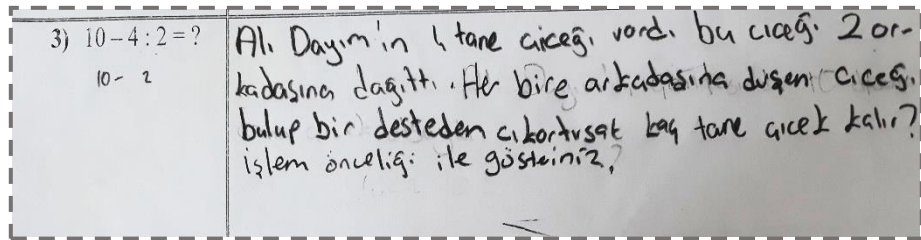 3) 10 – 4 : 2 = ?
10 - 2
Alı Dayım'ın 4 tane çiçeğı vardı bu cıceğı 2 ar-
kadasına dağıttı. Her bire arkadasına duşen cıceğı
bulup bir desteden cıkartırsak kaç tane çıcek kalır?
işlem önceliği ile gösteiniz.